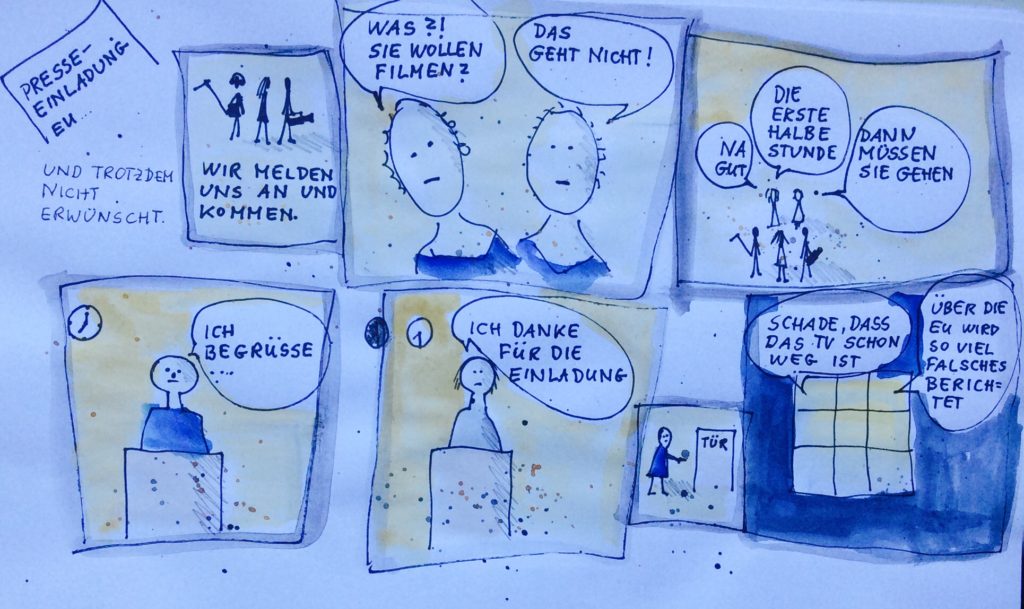 PRESSE-
EINLADUNG
EU...
UND TROTZDEM
NICHT
ERWÜNSCHT.
WIR MELDEN
UNS AN UND
KOMMEN.
WAS?!
SIE WOLLEN
FILMEN?
DAS
GEHT NICHT!
NA
GUT
DIE
ERSTE
HALBE
STUNDE
DANN
MÜSSEN
SIE GEHEN
ICH
BEGRÜSSE
....
1
ICH DANKE
FÜR DIE
EINLADUNG
TÜR
SCHADE, DASS
DAS TV SCHON
WEG IST
ÜBER DIE
EU WIRD
SO VIEL
FALSCHES
BERICH=
TET